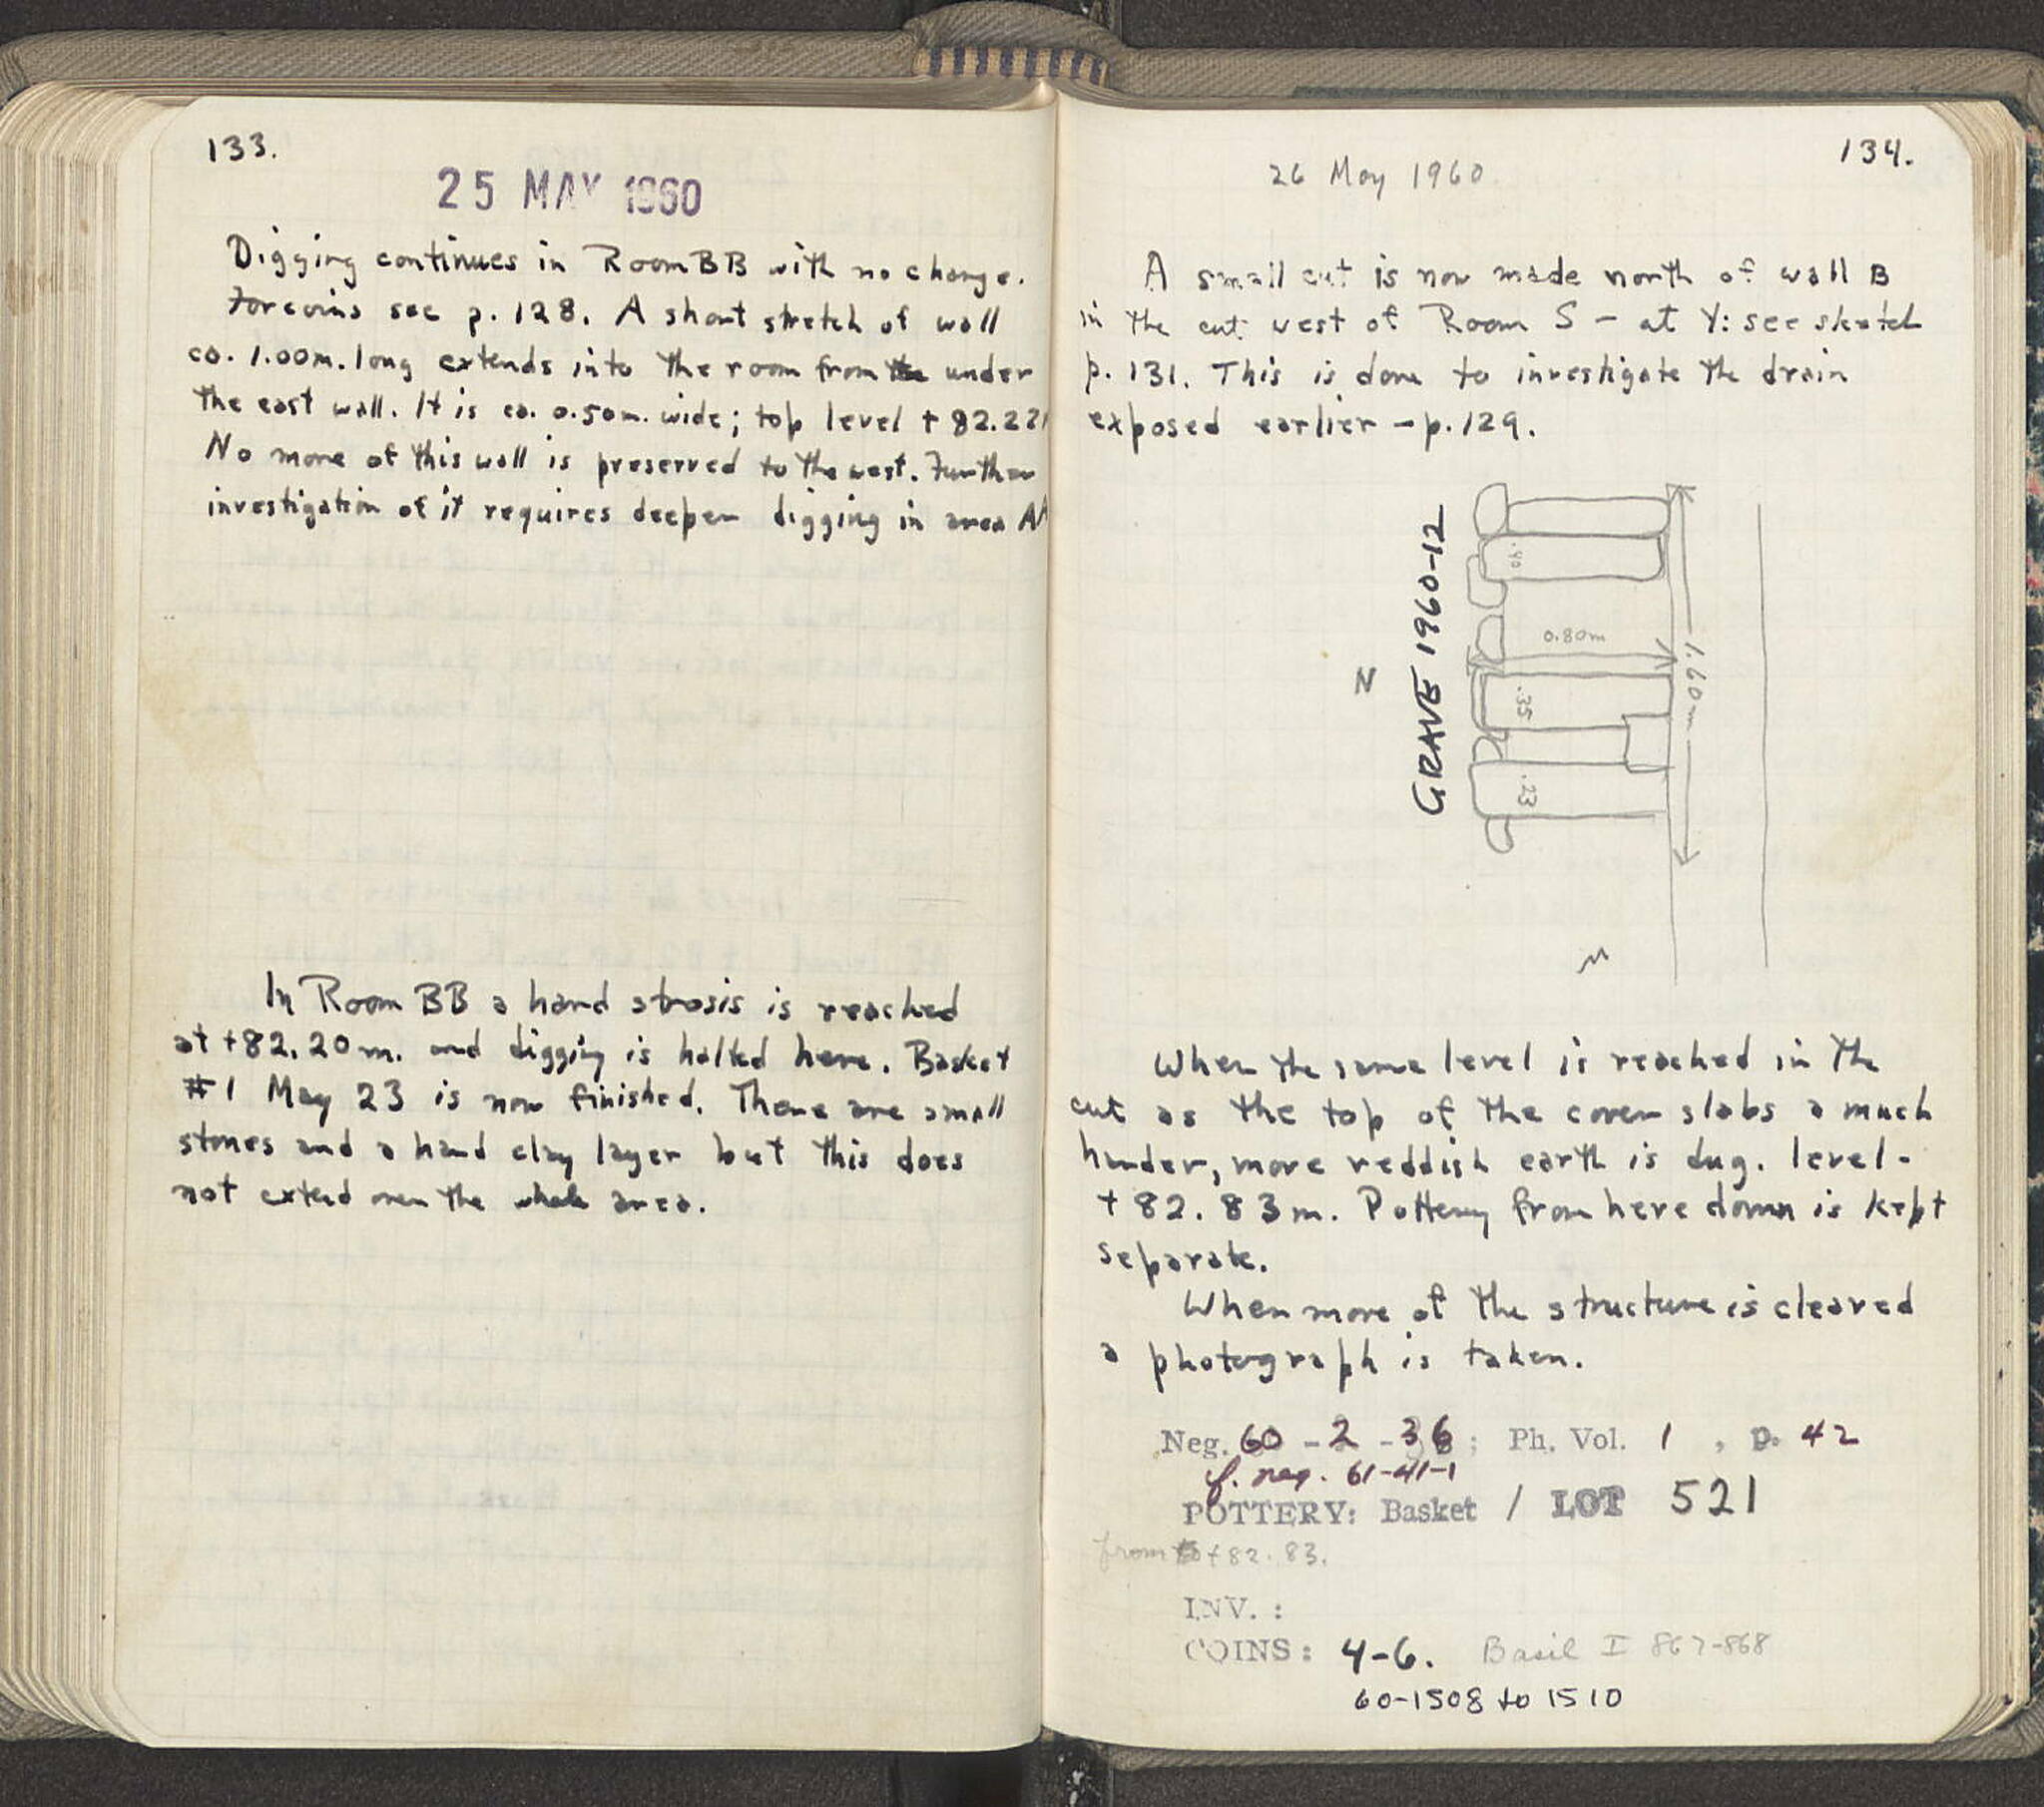 133.
25 MAY 1960
Digging continues in Room BB with no change.
For coins see p. 128. A short stretch of wall
ca. 1.00m. long extends into the room from the under
the east wall. It is ca. 0.50m. wide; top level + 82.22
No more of this wall is preserved to the west. Further
investigation of it requires deeper digging in area
In Room BB a hard strosis is reached
at +82.20m. and digging is halted here. Basket
#1 May 23 is now finished. There are small
stones and a hard clay layer but this does
not extend over the whole area.
134.
26 May 1960
A small cut is now made north of wall B
in the cut west of Room S - at Y: see sketch
p. 131. This is done to investigate the drain
exposed earlier - p. 129.
GRAVE 1960-12
N
.40
0.80m
1.60m
.35
.23
When the same level is reached in the
cut as the top of the cover slabs a much
harder, more reddish earth is dug. level -
+82.83m. Pottery from here down is kept
separate.
When more of the structure is cleared
a photograph is taken.
Neg. 60 - 2 - 36; Ph. Vol. 1, p. 42
cf. neg. 61-41-1
POTTERY: Basket 1 LOT 521
from +82.83.
INV. :
COINS: 4-6. Basil I 867-868
60-1508 to 1510